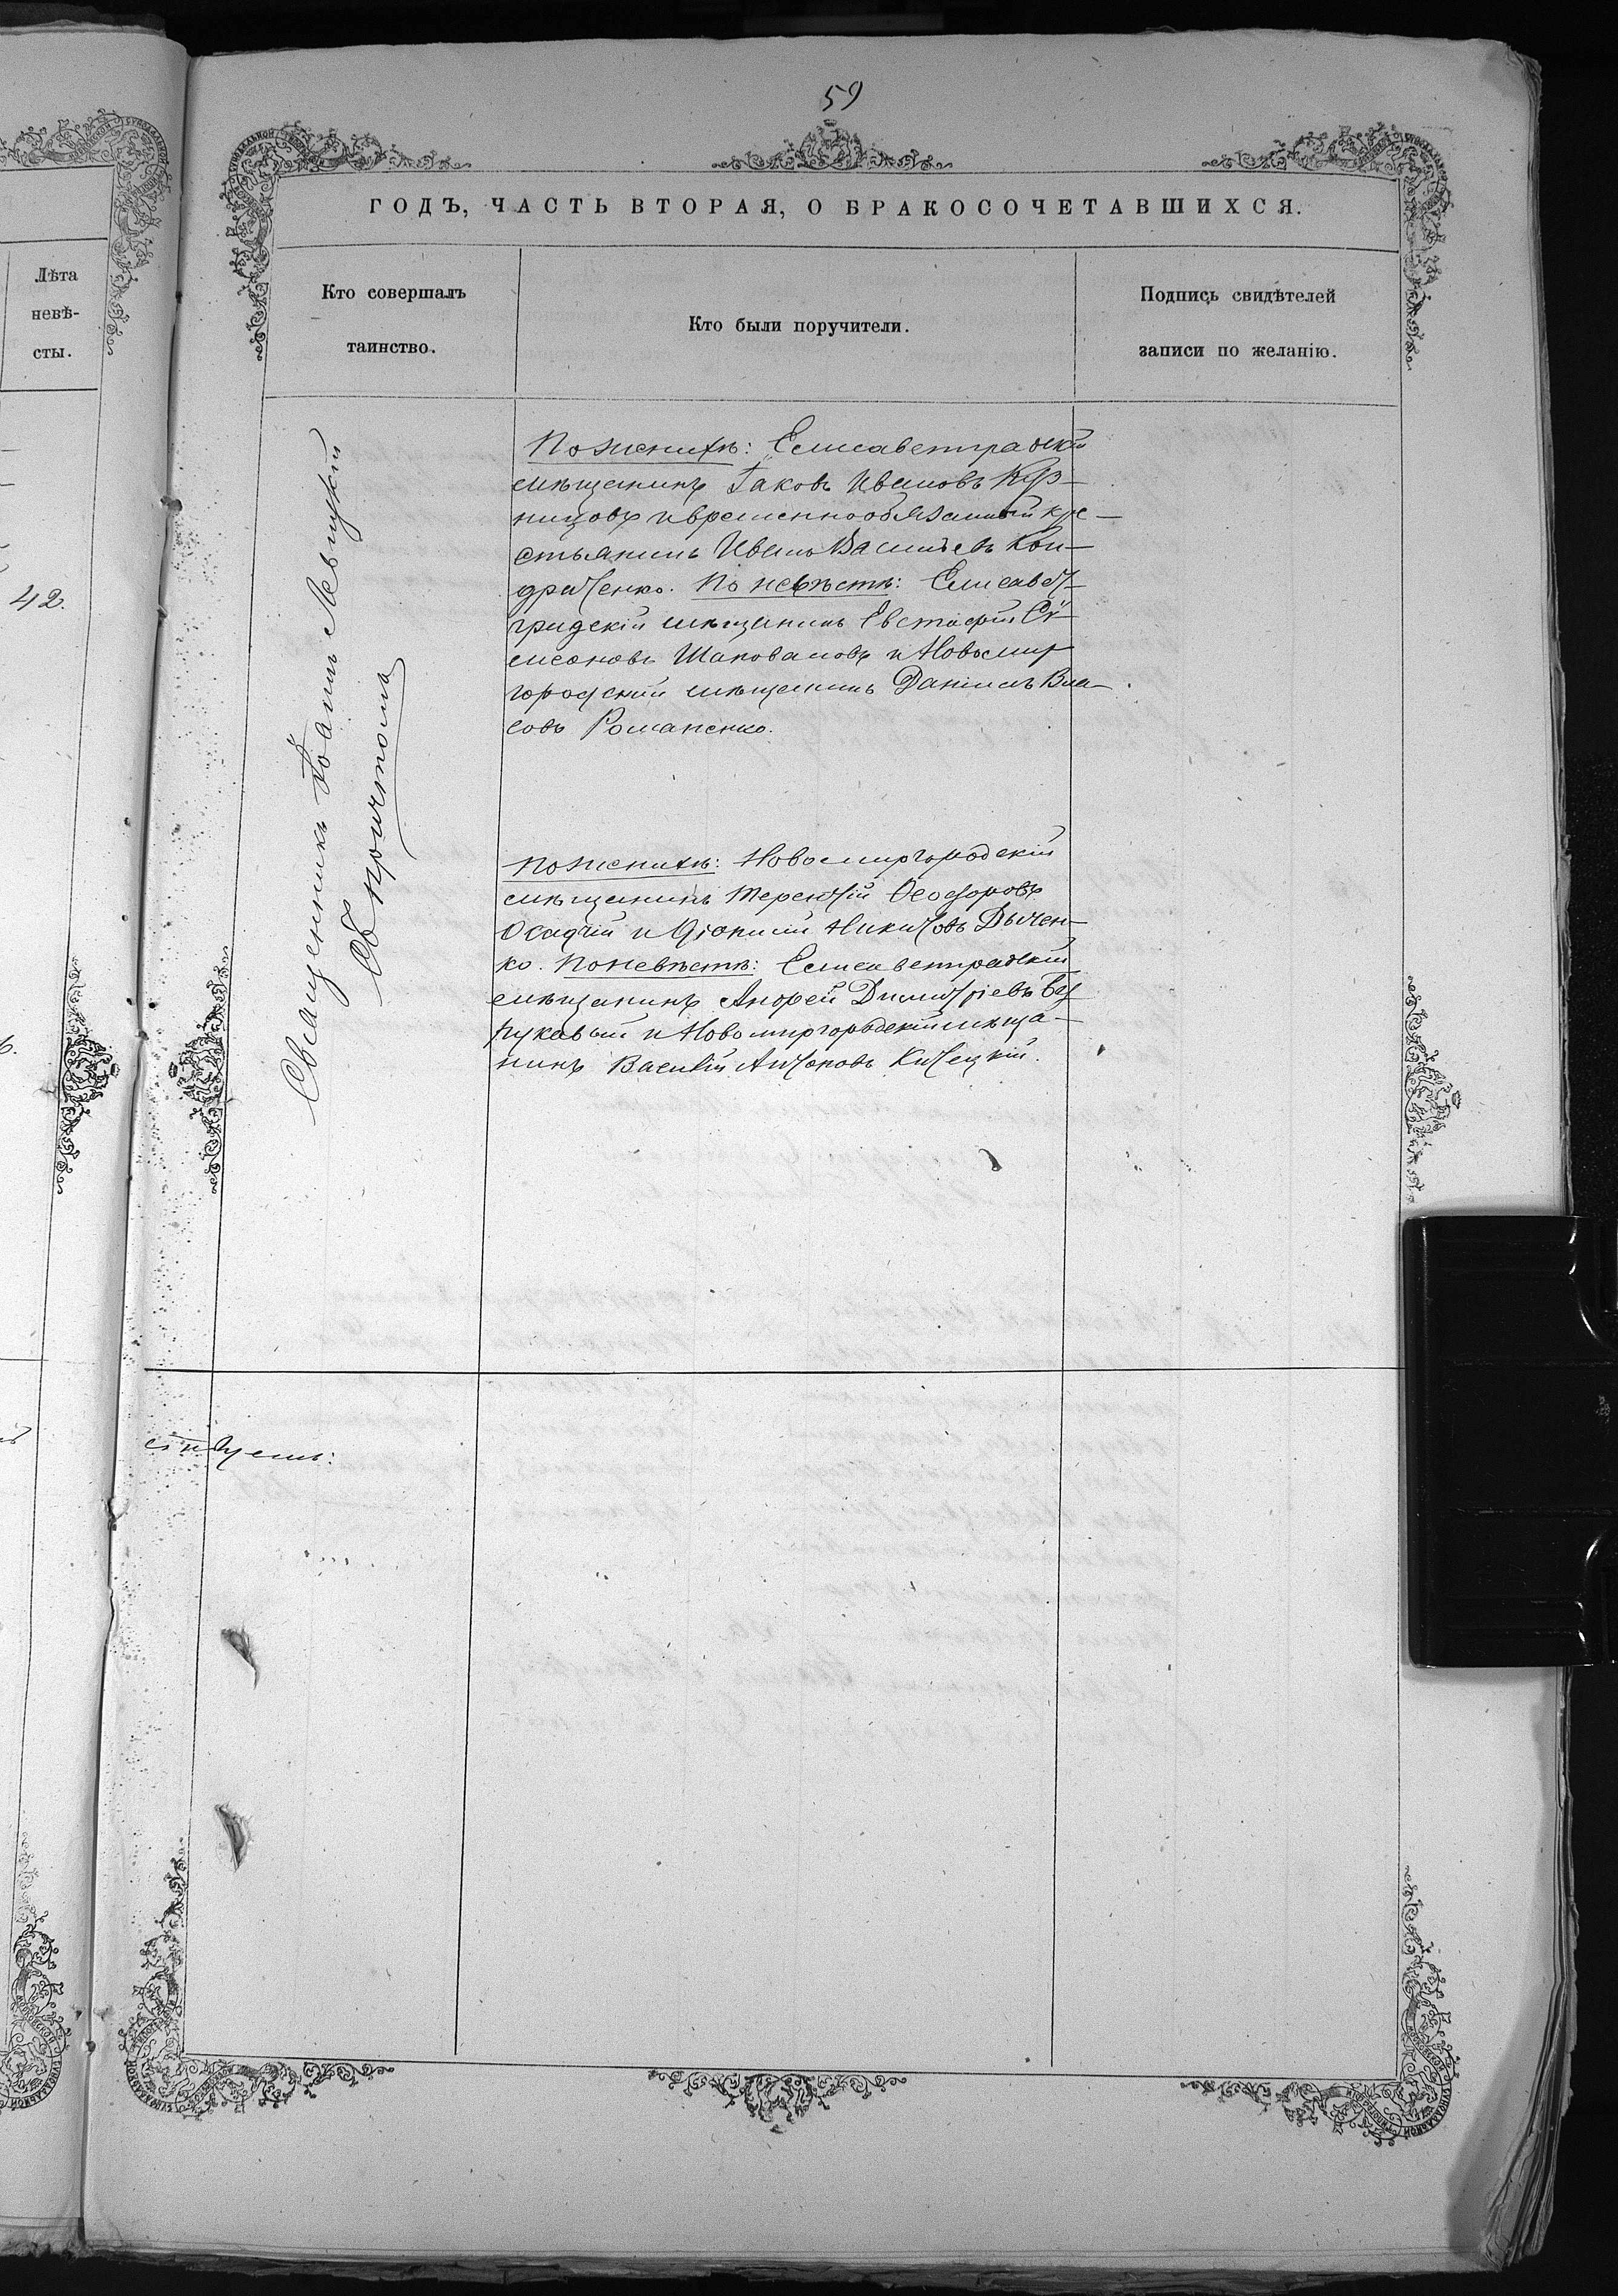 59
ГОДЪ, ЧАСТЬ ВТОРАЯ, О БРАКОСОЧЕТАВШИХСЯ.
Лѣта
невѣ-
сты.
Кто совершалъ
таинство.
Кто были поручители.
Подпись свидѣтелей
записи по желанію.
42.
Священникъ Іоаннъ Левицкій
Съ причтомъ
По женихѣ: Елисаветградскій
мѣщанинъ Іаковъ Ивановъ
и временнообязанный кре-
стьянинъ Иванъ Васильевъ Кон-
дратенко. По невѣстѣ: Елисавет-
градскій мѣщанинъ Евстафій Си-
меоновъ Шаповаловъ и Новомир-
городскій мѣщанинъ Даніилъ Вла-
совъ Романенко.
По женихѣ: Новомиргородскій
мѣщанинъ Терентій Ѳеодоровъ
Осадчій и Діонисій Никитовъ Дычен-
ко. По невѣстѣ: Елисаветградскій
мѣщанинъ Андрей Димитріевъ Без-
рукавый и Новомиргородскій мѣща-
нинъ Василій Антоновъ Китецкій.